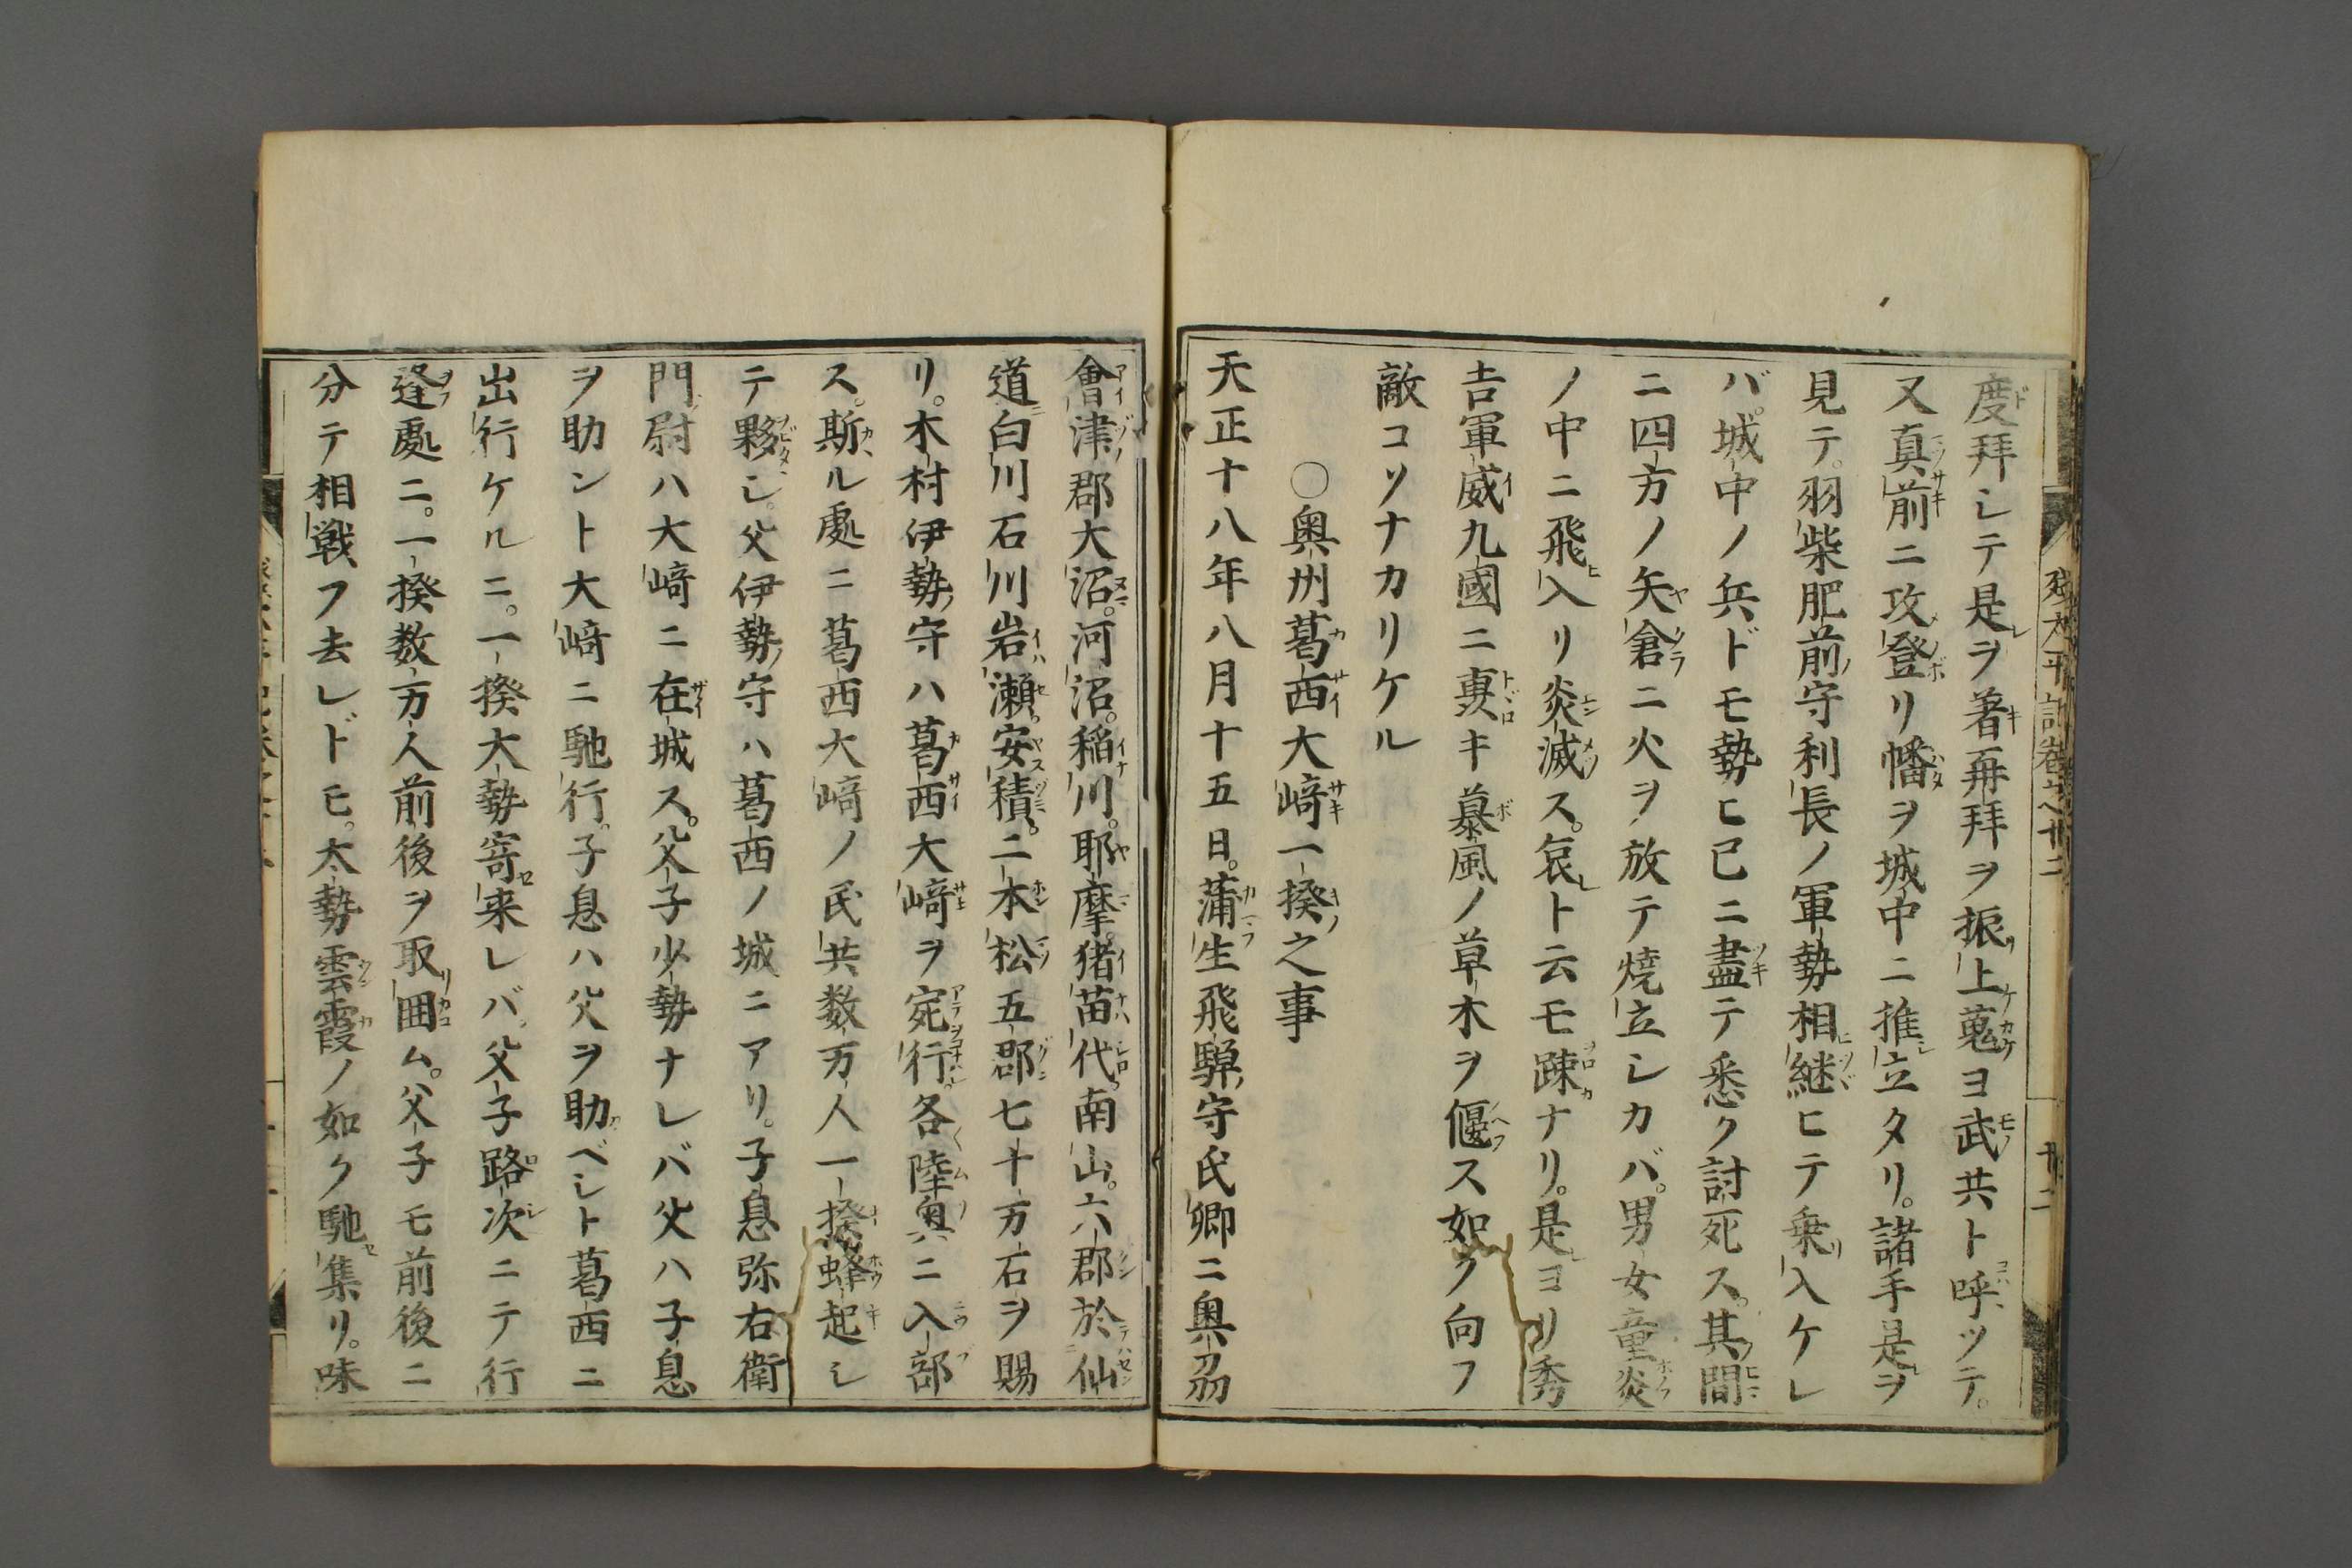 度拜シテ是ヲ著再拜ヲ振上蒐ヨ武共ト呼ッテ。
又真前ニ攻登リ幡ヲ城中ニ推立タリ。諸手是ヲ
見テ。羽柴肥前守利長ノ軍勢相継ヒテ乗入ケレ
バ。城中ノ兵ドモ勢ヒ已ニ盡テ悉ク討死ス。其間
ニ四方ノ矢倉ニ火ヲ放テ焼立シカバ。男女童炎
ノ中ニ飛入リ炎滅ス。哀ト云モ踈ナリ。是ヨリ秀
吉軍威九國ニ キ暴風ノ草木ヲ偃ス如ク向フ
敵コソナカリケル
〇奥州葛西大﨑一揆之事
天正十八年八月十五日。蒲生飛騨守氏卿ニ奥刕
會津郡大沼。河沼。稲川。耶摩。猪苗代南山。六郡於仙
道白川石川岩瀬。安積。二本松五郡七十万石ヲ賜
リ。木村伊勢守ハ葛西大﨑ヲ宛行。各陸奥ニ入部
ス。斯ル處ニ葛西大﨑ノ民共数万人一揆蜂起シ
テ夥シ。父伊勢守ハ葛西ノ城ニアリ。子息弥右衛
門尉ハ大﨑ニ在城ス。父子少勢ナレバ父ハ子息
ヲ助ント大﨑ニ馳行。子息ハ父ヲ助ベシト葛西ニ
出行ケルニ。一揆大勢寄来レバ。父子路次ニテ行
逢處ニ。一揆数万人前後ヲ取囲ム。父子モ前後ニ
分テ相戦フ去レドモ。大勢雲霞ノ如ク馳集リ。味